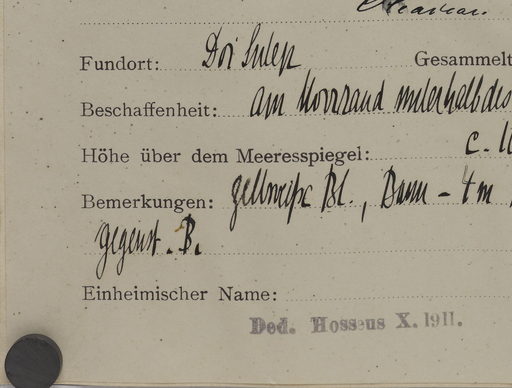 Fundort: Doi Sutep Gesammelt
Beschaffenheit: am Moorrand unterhalb des
Höhe über dem Meeresspiegel: c.
Bemerkungen: gelbweiße Bl., Baum - 4 m
gegenst. B.
Einheimischer Name:
Ded. Hosseus X. 1911.